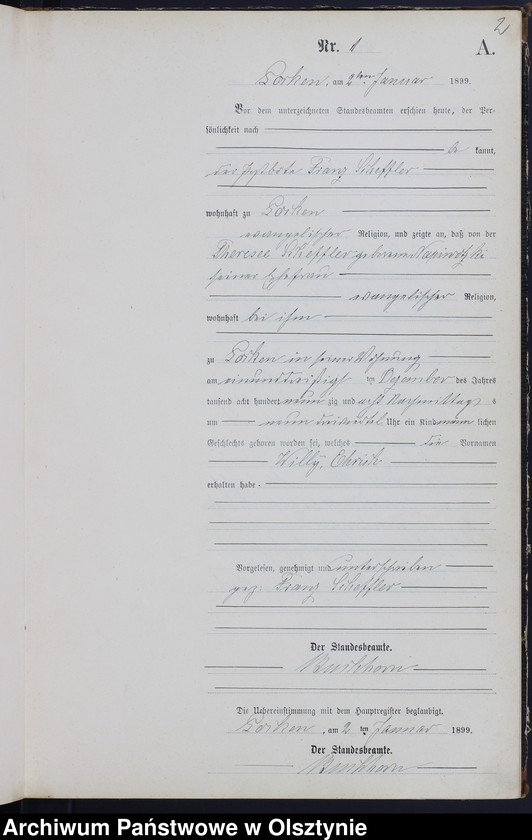 2
Nr. 1 A.
am 2ten Januar 1899.
Vor dem unterzeichneten Standesbeamten erschien heute, der Per-
sönlichkeit nach
be kannt,
der Postbote Franz Scheffler
wohnhaft zu
evangelischer Religion, und zeigte an, daß von der
Therese Scheffler geborene
seiner Ehefrau
evangelischer Religion,
wohnhaft bei ihm
zu in seiner Wohnung
am einunddreißigs ten Dezember des Jahres
tausend acht hundert neun zig und acht Nachmittags
um neun dreiviertel Uhr ein Kind männ lichen
Geschlechts geboren worden sei, welches die Vornamen
Willy,
erhalten habe
Vorgelesen, genehmigt und unterschrieben
gez: Franz Scheffler
Der Standesbeamte.
Die Uebereinstimmung mit dem Hauptregister beglaubigt.
, am 2 ten Januar 1899.
Der Standesbeamte.
Archiwum Państwowe w Olsztynie